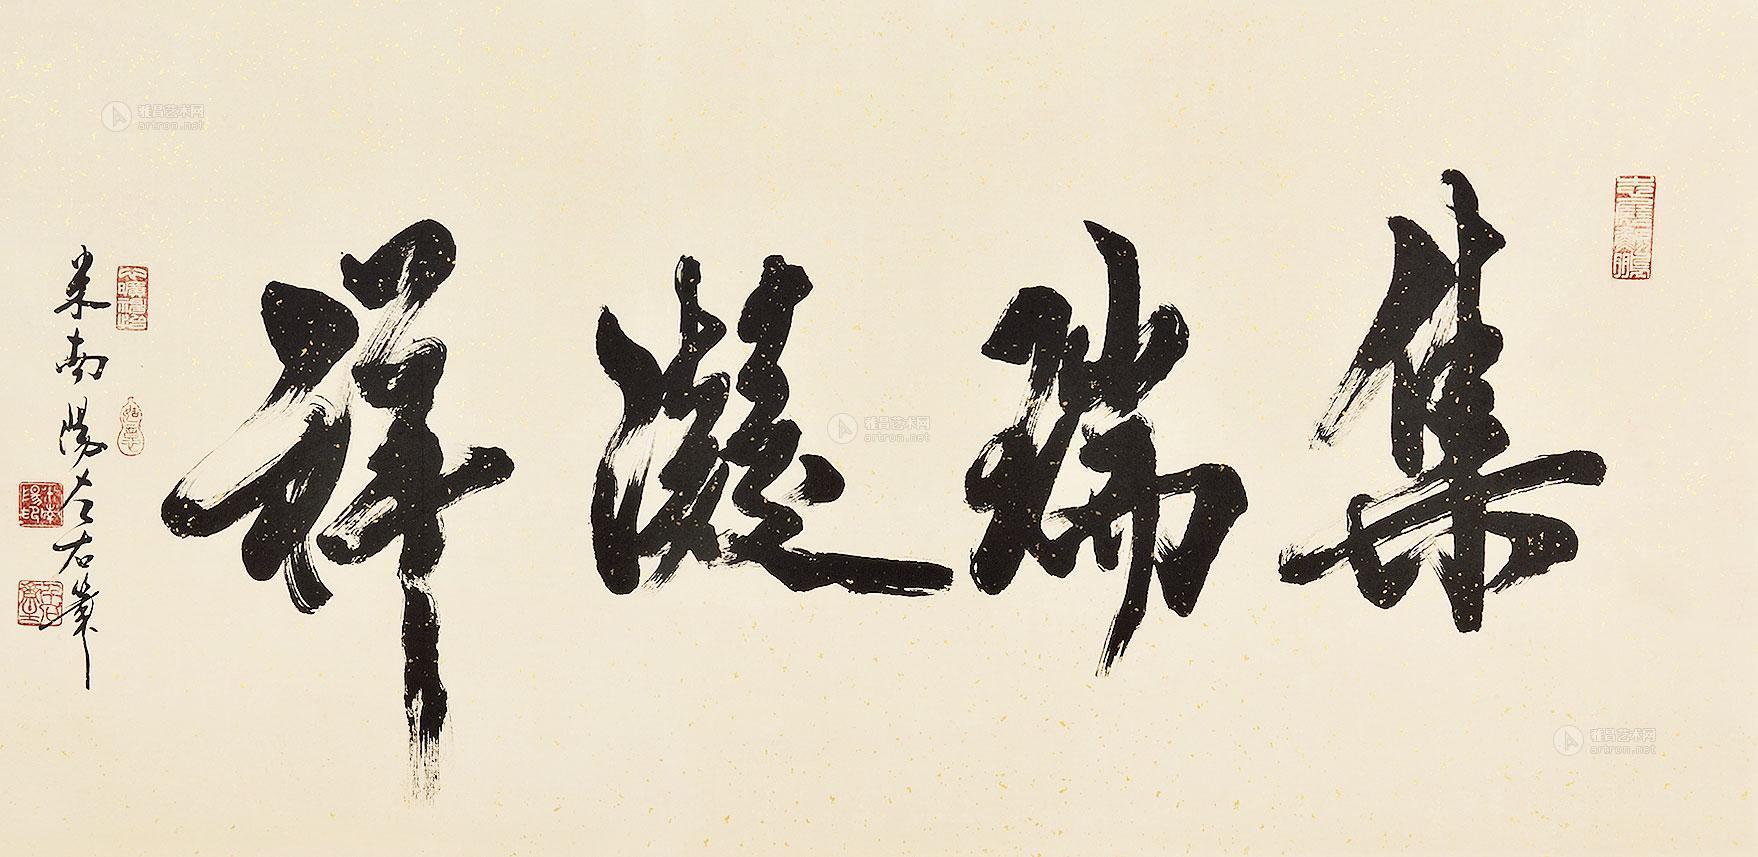 集瑞凝祥
米南陽左右筆
雅昌艺术网
artron.net
雅昌艺术网
artron.net
雅昌艺术网
artron.net